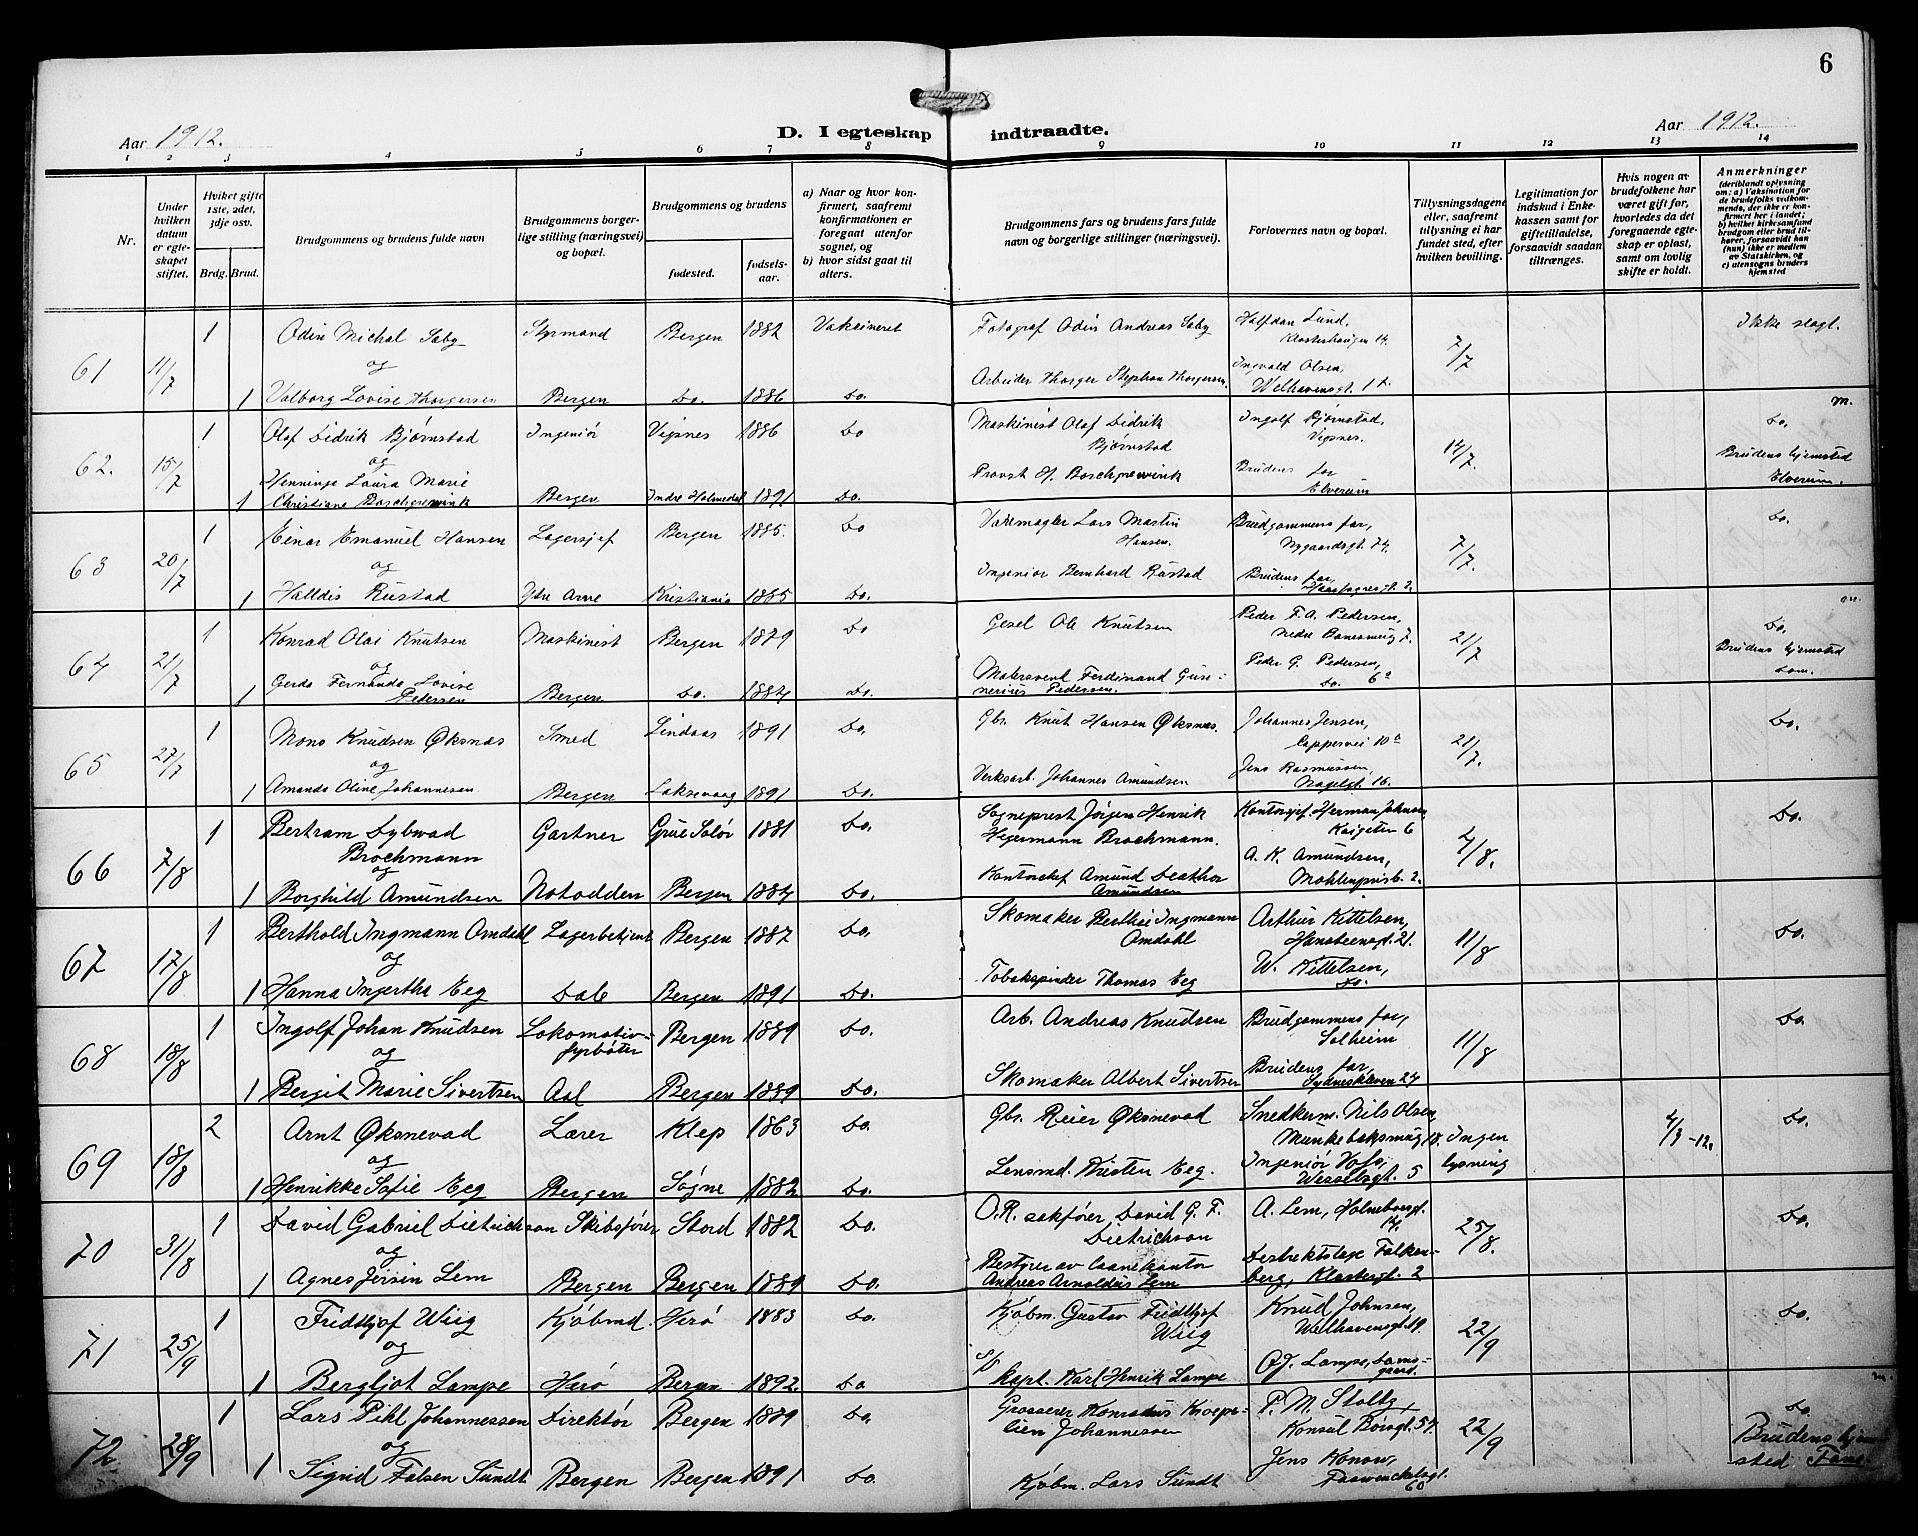 6
Aar 1912.
D. I egteskap indtraadte.
Aar 1912.
1 2 3 4 5 6 7 8 9 10 11 12 13 14
Nr.
Under hvilken datum er egteskapet stiftet.
Hvilket gifte 1ste, 2det, 3dje osv.
Brdg. Brud.
Brudgommens og brudens fulde navn
Brudgommens borgerlige stilling (næringsvei) og bopæl.
Brudgommens og brudens
fødested. fødselsaar.
a) Naar og hvor konfirmert, saafremt konfirmationen er foregaat utenfor sognet, og
b) hvor sidst gaat til alters.
Brudgommens fars og brudens fars fulde navn og borgerlige stillinger (næringsvei).
Forlovernes navn og bopæl.
Tillysningsdagene eller, saafremt tillysning ei har fundet sted, efter hvilken bevilling.
Legitimation for indskud i Enkekassen samt for giftetilladelse, forsaavidt saadan tiltrænges.
Hvis nogen av brudefolkene har været gift før, hvorledes da det foregaaende egteskap er opløst, samt om lovlig skifte er holdt.
Anmerkninger
(deriblandt oplysning om: a) Vaksination for de brudefolks vedkommende, der ikke er konfirmert her i landet; b) hvilket kirkesamfund brudgom eller brud tilhører, forsaavidt han (hun) ikke er medlem av Statskirken, og c) utensogns bruders hjemsted
61 11/7 1 Odin Michal Saby Styrmand Bergen 1882 Vaksineret Fotograf Odin Andreas Saby Halfdan Lund, Klosterhaugen 14. 7/7 Ikke slegt.
og
1 Valborg Lovise Thorgersen Bergen Do. 1886 Do. Arbeider Thorger Stephan Thorgersen. Ingvald Olsen, Welhavensgt. 12.
62. 15/7 1 Olaf Didrik Bjørnstad Ingeniør Vigsnes 1886 Do Maskinist Olaf Didrik Bjørnstad Ingolf Bjørnstad, Vigsnes. 14/7. m. Do.
og
1 Henninge Laura Marie Christiane Borchgrewink Bergen Indre Holmedal 1891. Do. Provst H. Borchgrewink Brudens far Elverum Brudens hjemsted Elverum.
63 20/7 1 Einar Emanuel Hansen Lagersjef Bergen 1885. Do Varemægler Lars Martin Hansen. Brudgommens far, Nygaardsgt. 74. 7/7. Do.
og
1 Halldis Rustad Ytre Arne Kristiania 1885 Do. Ingeniør Bernhard Rustad Brudens far,
64 21/7 1 Konrad Olai Knutsen Maskinist Bergen 1879 Do Gesel Ole Knutsen Peder F. A. Pedersen, 21/7 m. Do.
og
1 Gerda Fernanda Lovise Pedersen Bergen Do. 1884 Do. Matrosvend Ferdinand Gunnerius Pedersen. Peder G. Pedersen, Do. Brudens hjemsted
65 27/7 1 Mons Knudsen Øksnæs Smed Lindaas 1891 Do. Gbr. Knut Hansen Øksnæs. Johannes Jensen, 21/7. Do.
og
1 Amanda Oline Johannesen Bergen Laksevaag 1891 Do. Verksarb. Johannes Amundsen Jens Rasmussen, Nagelgt. 16.
66 7/8 1 Bertram Dybwad Brochmann Gartner Grue Solør 1881 Do. Sogneprest Jørgen Henrik Hegermann Brochmann. Kontorsjef. Herman Johnsen Kaigaten 6 4/8. Do.
og
1 Borghild Amundsen Notodden Bergen 1884 Do. Kontorchef Amund Amundsen A. K. Amundsen, Møhlenprisb. 2.
67 17/8 1 Berthold Ingmann Omdahl Lagerbetjent Bergen 1887 Do. Skomaker Berthie Ingmann Omdahl Arthur Kittelsen, Hansteensgt. 21. 11/8 Do.
og
1 Hanna Ingertha Eeg Dale Bergen 1891 Do. Tobakspinder Thomas Eeg W. Kittelsen, Do.
68 18/8 1 Ingolf Johan Knudsen Lokomotivfyrbøter Bergen 1889 Do. Arb. Andreas Knudsen Brudgommens far, Solheim 11/8 Do.
og
1 Bergit Marie Sivertsen Aal Bergen 1889 Do. Skomaker Albert Sivertsen Brudens far, Sydneskleven 27
69 18/8 2 Arnt Øksnevad Lærer Klep 1863 Do. Gbr. Reier Øksnevad Snedkerm. Nils Olsen Munkebæksmug 18. Ingen lysning 4/3-12. Do.
og
1 Henrikke Sofie Eeg Bergen Søgne 1882 Do. Lensmd. Kristen Eeg. Ingeniør Vofs, Wesselsgt. 5
70 31/8 1 David Gabriel Dietrichson Skibsfører Stord 1882 Do. O.R. sakfører David G. F. Dietrichson A. Lem, Holmebergt. 14. 25/8. Do.
og
1 Agnes Jersin Lem Bergen Bergen 1889 Do. Bestyrer av Laanekontor Andreas Arnoldus Lem Distriktslæge Falkenberg, Klostergt. 2
71 25/9 1 Fridthjof Wiig Kjøbmd. Herø 1883 Do. Kjøbm. Gustav Fridthjof Wiig Knud Johnsen, Welhavensgt. 19. 22/9 Do.
og
1 Bergljot Lampe Herø Bergen 1892. Do S/S kapt. Karl Henrik Lampe O.J. Lampe, Damsgaard.
72 28/9 1 Lars Pihl Johannessen Direktør Bergen 1889 Do. Grosserer Konradus Johannessen P. M. Stoltz, Konsul Børsgt. 57. 22/9 m. Do.
og
1 Sigrid Falsen Sundt Bergen Bergen 1891 Do. Kjøbm. Lars Sundt Jens Konow, 60 Brudens hjemsted Fane.